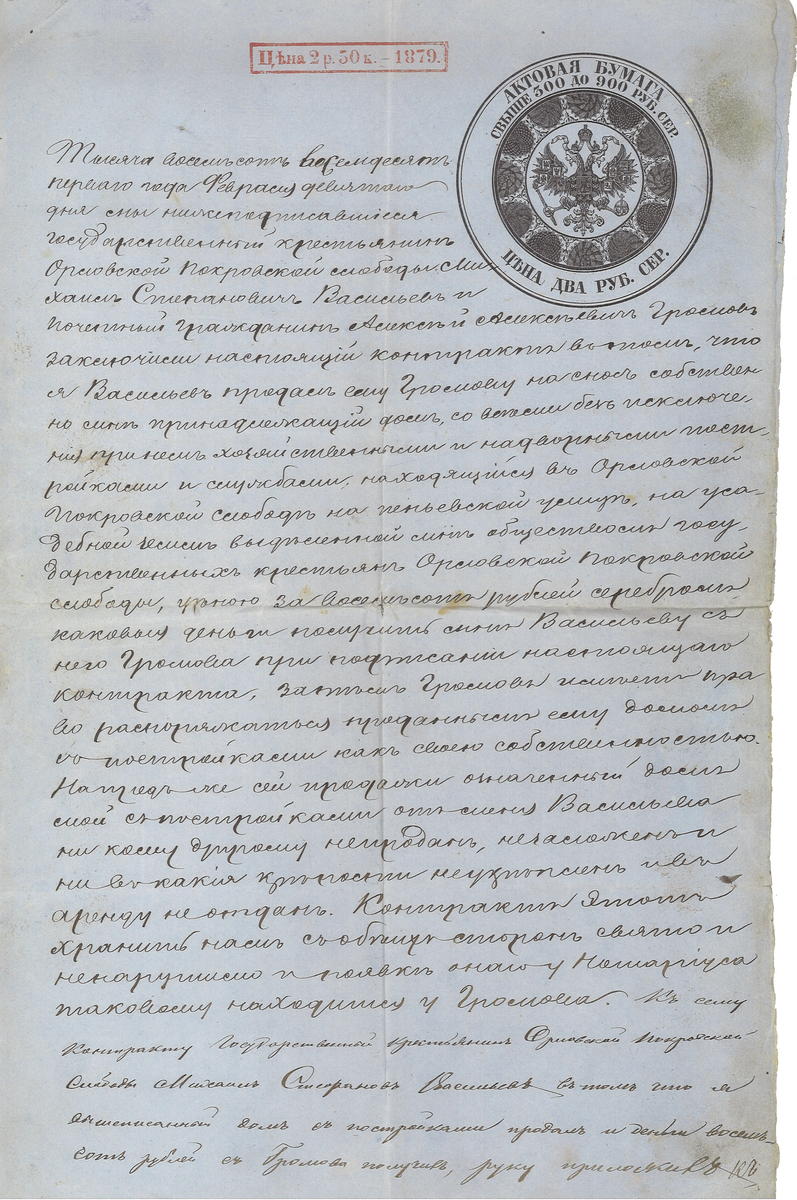 Цѣна 2 р. 50 к. – 1879.
АКТОВАЯ БУМАГА
СВЫШЕ 300 ДО 900 РУБ. СЕР.
ЦѢНА ДВА РУБ. СЕР.
Тысяча восемьсотъ восемдесятъ
перваго года Февраля девятаго
дня мы нижеподписавшіеся
государственный крестьянинъ
Орловской Покровской слободы Ми-
хаилъ Степановичъ Васильевъ и
почетный гражданинъ Алексѣй Алексѣевичъ Громовъ
заключили настоящій контрактъ въ томъ, что
я Васильевъ продалъ ему Громову на сносъ собствен-
но мнѣ принадлежащій домъ, со всеми безъ исключе-
нія при немъ хозяйственными и надворными пост-
ройками и службами, находящійся въ Орловской
Покровской слободѣ на Пеньевской улицѣ, на уса-
дебной землѣ выдѣленной мнѣ обществомъ госу-
дарственныхъ крестьянъ Орловской Покровской
слободы, цѣною за восемьсотъ рублей серебромъ
каковыя деньги получить мнѣ Васильеву съ
него Громова при подписаніи настоящаго
контракта, затѣмъ Громовъ имѣетъ пра
во распоряжаться проданнымъ ему домомъ
съ постройками какъ своею собственностью.
Напредъ же сей продажи означенный домъ
мой съ постройками отъ меня Васильева
ни кому другому непроданъ, незаложенъ и
ни въ какія крѣпости неукрѣпленъ и въ
аренду не отданъ. Контрактъ этотъ
хранить намъ съ обѣихъ сторонъ свято и
ненарушимо и по явкѣ онаго у Нотаріуса
таковому находится у Громова. Къ сему
контракту Государственный крестьянинъ Орловской Покровской
слободы Михаилъ Степановъ Васильевъ въ томъ что я
вышеписанный домъ съ постройками продалъ и деньги восемь-
сотъ рублей съ Громова получилъ, руку приложилъ